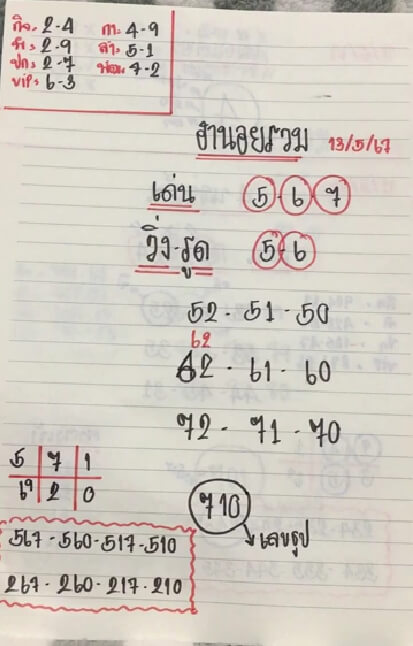 กิจ. 2-4 กา. 4-9
ค. 2-9 ลา. 5-1
ปก. 2-7 พ่อ. 4-2
vip. 6-3
ฮานอยรวม 13/5/67
เด่น 5-6-7
วิ่ง-รูด 5-6
52-51-50
62
62-61-60
72-71-70
5 7 1
6 2 0
710
เลขธูป
567-560-517-510
267-260-217-210